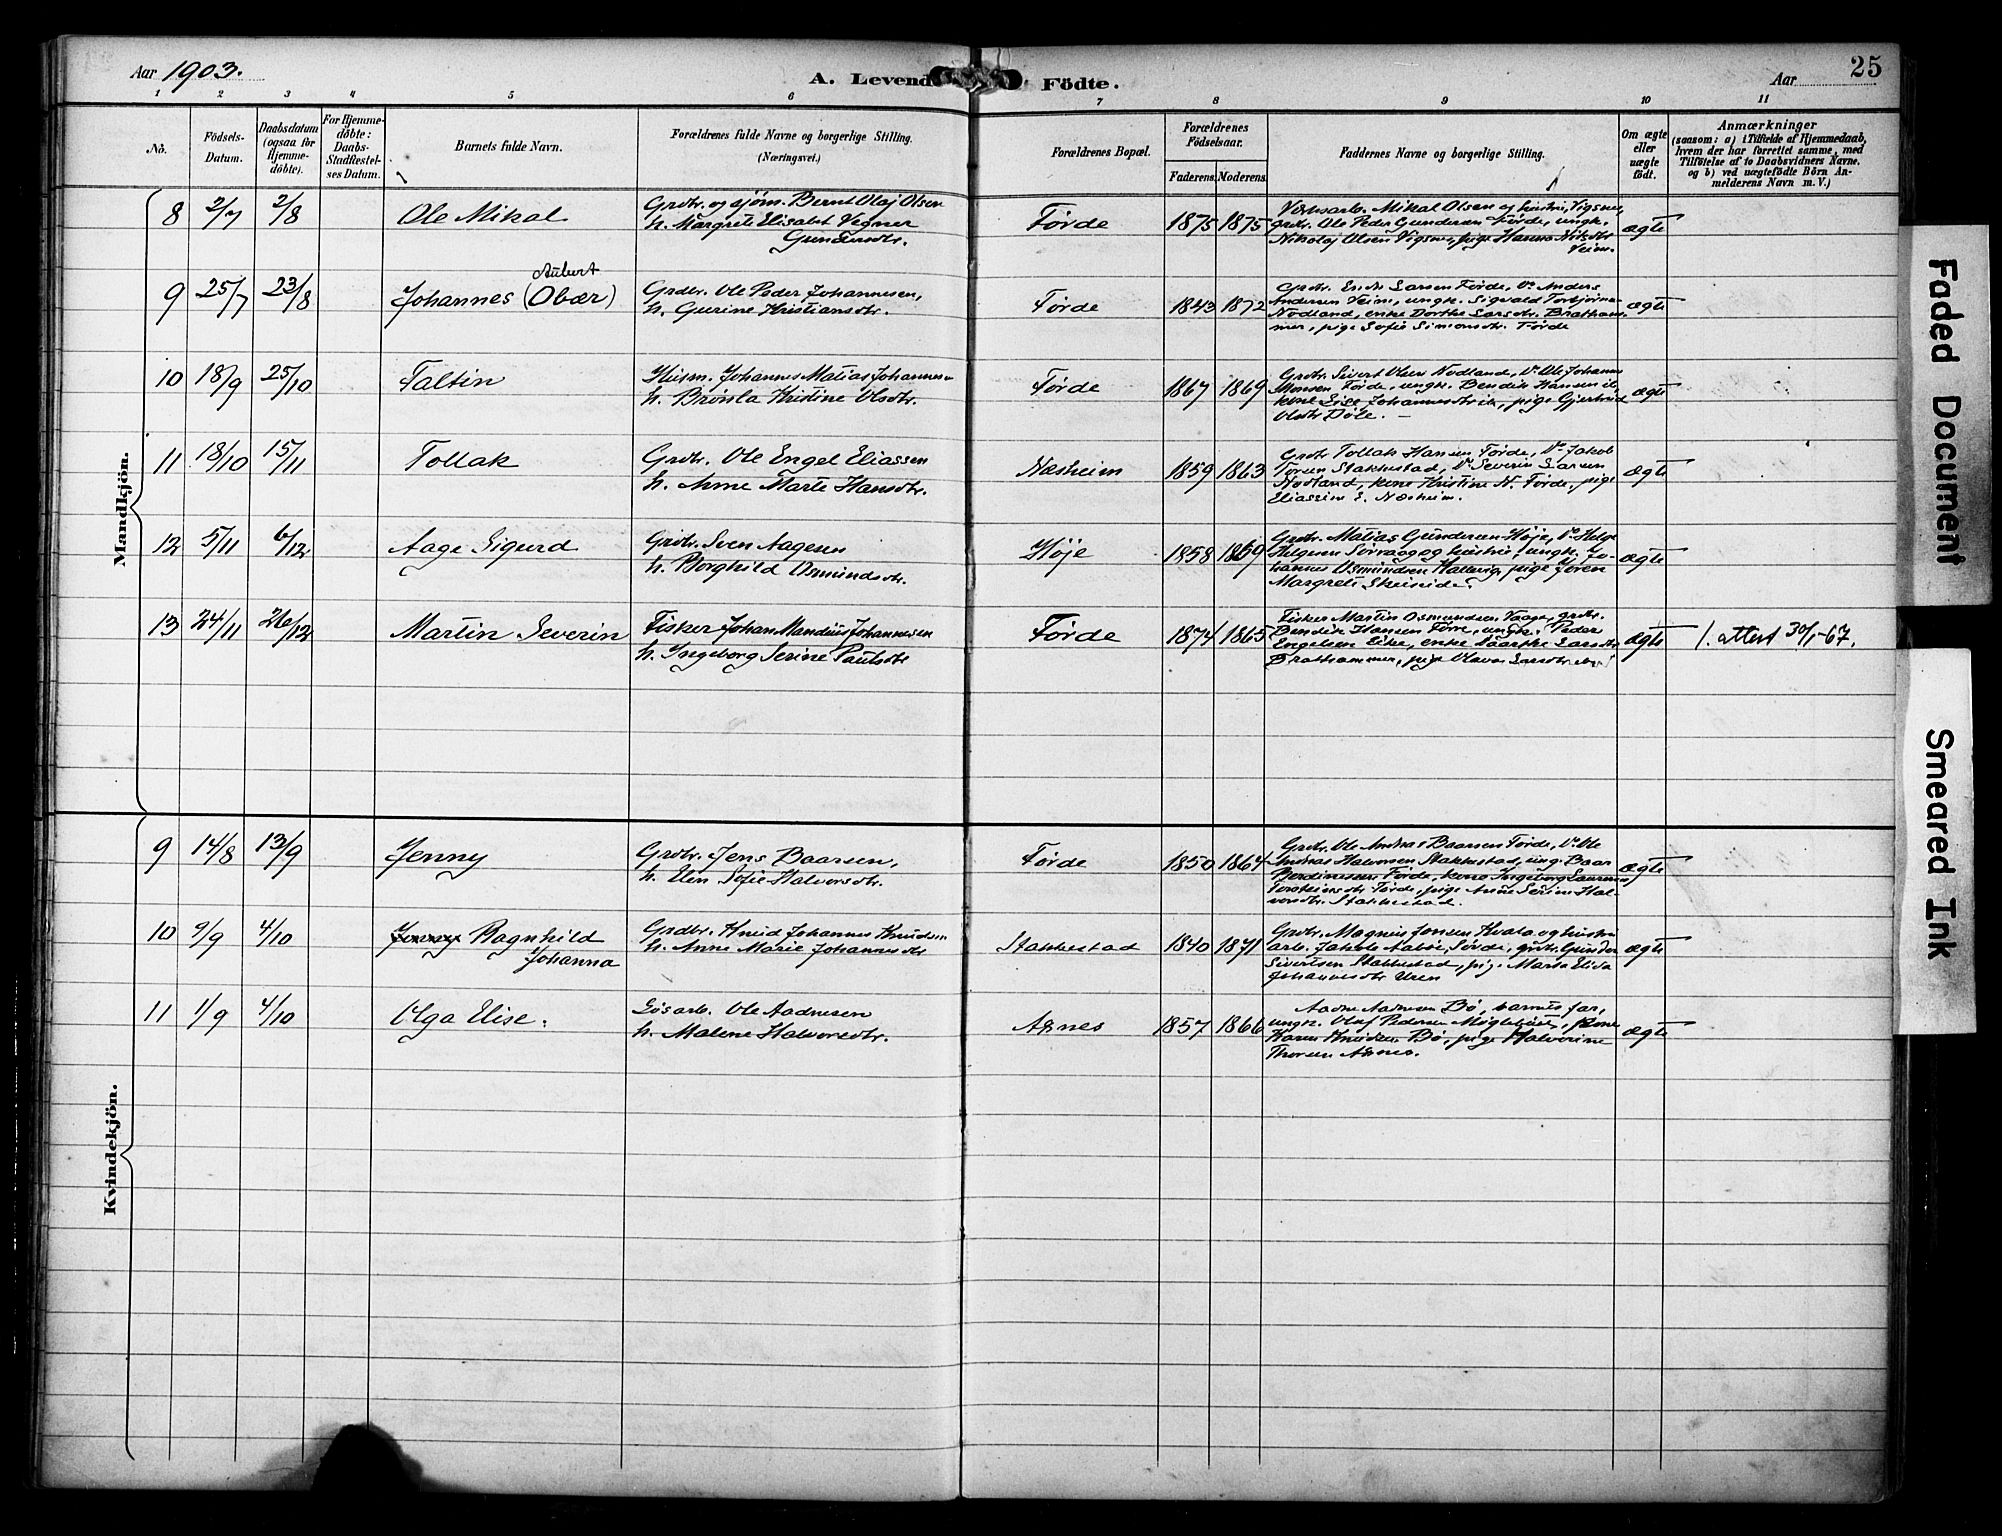 Aar 1903.
A. Levende Födte.
Aar
25
1 2 3 4 5 6 7 8 9 10 11
No.
Födsels-Datum.
Daabsdatum (ogsaa for Hjemme-döbte).
For Hjemme-döbte: Daabs-Stadfestel-ses Datum.
Barnets fulde Navn.
Forældrenes fulde Navne og borgerlige Stilling. (Næringsvei.)
Forældrenes Bopæl.
Forældrenes Födselsaar.
Faderens. Moderens.
Faddernes Navne og borgerlige Stilling.
Om ægte eller uægte født.
Anmærkninger (saasom: a) i Tilfælde af Hjemmedaab, hvem der har forrettet samme, med Tilföielse af to Daabsvidners Navne. og b) ved uægtefödte Börn An-melderens Navn m. V.)
Mandkjön.
8 2/7 2/8 Ole Mikal
Grdbr. og sjøm. Bernt Olaj Olsen
h. Margrete Elisabet Vegner
Gundersdtr.
Førde 1875 1875
Verksarb. Mikal Olsen og hustru, Vigsnes,
grdbr. Ole Peder Gundersen Førde, ungk.
Nikolaj Olsen Vigsnes, pige Hanna Nilsdtr.
Veim.
ægte
9 25/7 23/8 Johannes (Obær)
Aubert
Grdbr. Ole Peder Johannesen,
h. Gurine Kristiansdtr.
Førde 1843 1872
Grdbr. Endre Larsen Førde, Do Anders
Andersen Veim, ungk. Sigvald Torbjørns.
Nodland, enke Dorthe Larsdtr. Bratham-
mer, pige Sofie Simonsdtr. Førde
ægte
10 18/9 25/10 Faltin
Husm. Johannes Matias Johannesen
h. Brønla Kristine Olsdtr.
Førde 1867 1869
Grdbr. Sivert Olsen Nodland, Do Ole Johannes
Monsen Førde, ungk. Bendik Hansen ib,
kone Lise Johannesdtr. ib, pige Gjertrud
Olsdtr. Døle.
ægte
11 18/10 15/11 Tollak
Grdbr. Ole Engel Eliassen
h. Anne Marte Hansdtr.
Næsheim 1859 1863
Grdbr. Tollak Hansen Førde, Do Jakob
Torsen Stakkestad, Do Severin Larsen
Nodland, kone Kristine N. Førde, pige
Eliassine E. Næsheim.
ægte
12 5/11 6/12 Aage Sigurd
Grdbr. Sven Aagesen
h. Borghild Osmundsdtr.
Høje 1858 1869
Grdbr. Matias Gundersen Høje, Do Helge
Helgesen Sørvaag og hustru, ungk. Jo-
hannes Osmundsen Hallevig, pige Jøren
Margrete
ægte
13 24/11 26/12 Martin Severin
Fisker Johan Mandius Johannesen
h. Ingeborg Serine Paulsdtr
Førde 1874 1865
Fisker Martin Osmundsen Vaage, grdbr.
Bendik Hansen Førde, ungk. Peder
Engelsen Eike, enke Daarthe Larsdtr.
Brathammer, pige Olava Larsdtr.
ægte 1. attest 30/1-67.
Kvindekjön.
9 14/8 13/9 Jenny
Grdbr. Jens Baarsen,
h. Elen Sofie Halvorsdtr.
Førde 1850 1864
Grdbr. Ole Andreas Baarsen Førde, Do Ole
Andreas Halvorsen Stakkestad, ung. Baar
Berdinesen Førde, kone Ingeborg Laurense
Torsteinsdtr. Førde, pige Anne Serine Hal-
vorsdtr. Stakkestad.
ægte
10 9/9 4/10 Jenny Ragnhild
Johanna
Grdbr. Knud Johannes Knudsen
h. Anne Marie Johannesdtr
Stakkestad 1840 1871
Grdbr. Magnus Jonsen Kvala og hustru
arb. Jakob Aabøe, Søvde, grdbr. Gunder
Sivertsen Stakkestad, pige Marta Elisa
Johannesdtr. Uren
ægte
11 1/9 4/10 Olga Elise.
Løsarb. Ole Aadnesen
h. Malene Halvorsdtr.
Asnes 1857 1866
Aadne Aadnesen Bø, barnets far,
ungk. Oluf Pedersen kone
Karen Knudsen Bø, pige Halvorine
Thorsen Asnes.
ægte
Faded Document
Smeared Ink